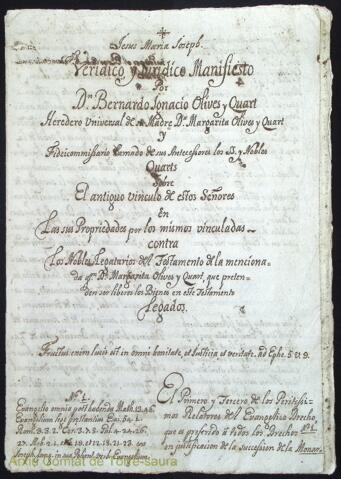 Jesus Maria Joseph.
Veridico y Juridico Manifiesto
Por
Dn. Bernardo Ignacio Olives y Quart
Heredero Universal de su Madre Da. Margarita Olives y Quart
y
Fideicommissario llamado de sus Antecessores los SS. y Nobles
Quarts
Sobre
El antiguo vinculo de estos Señores
En
Las sus Propriedades por los mismos vinculadas
contra
Los Nobles Legatarios del Testamento de la menciona-
da Da. Margarita Olives y Quart, que preten-
den ser libres los Bienes en este Testamento
Legados.
Fructus enim lucis est in omni bonitate, et Justicia et veritate. ad Ephe. 5 v. 9.
No. 1.
Evangelio omnia postponenda Math. 13. 46.
Evangelium lege prestantius
El Primero y Tercero de los Peritissi-
mos Relatores del Evangelico Drecho,
que es preferido à todos los Drechos No. 1
en justificacion de la succession de la Monar-
Arxiu Comtat de Torre-saura